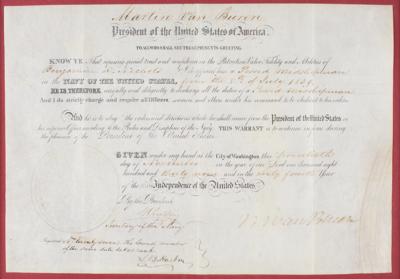 Martin Van Buren
President of the United States of America.
TO ALL WHO SHALL SEE THESE PRESENTS GREETING
KNOW YE That reposing special trust and confidence in the Patriotism Valor Fidelity and Abilities of
Benjamin Nichols I appoint him a Passed Midshipman
in the NAVY OF THE UNITED STATES, from the July 1839.
HE IS THEREFORE, carefully and diligently to discharge the duties of a Passed Midshipman
And I do strictly charge and require all Officers, seamen and others under his command to be obedient to his orders
And he is to obey the orders and directions which he shall receive from the President of the United States or
his superior Officer according to the Rules and Discipline of the Navy. THIS WARRANT is to continue in force during
the pleasure of the President of the United States
GIVEN under my hand at the City of Washington this twentieth
day of November in the year of our Lord one thousand eight
hundred and thirty nine and in the sixty fourth Year
of the Independence of the United States.
By the President
M Van Buren
Secretary of the Navy
of the same date takes rank.